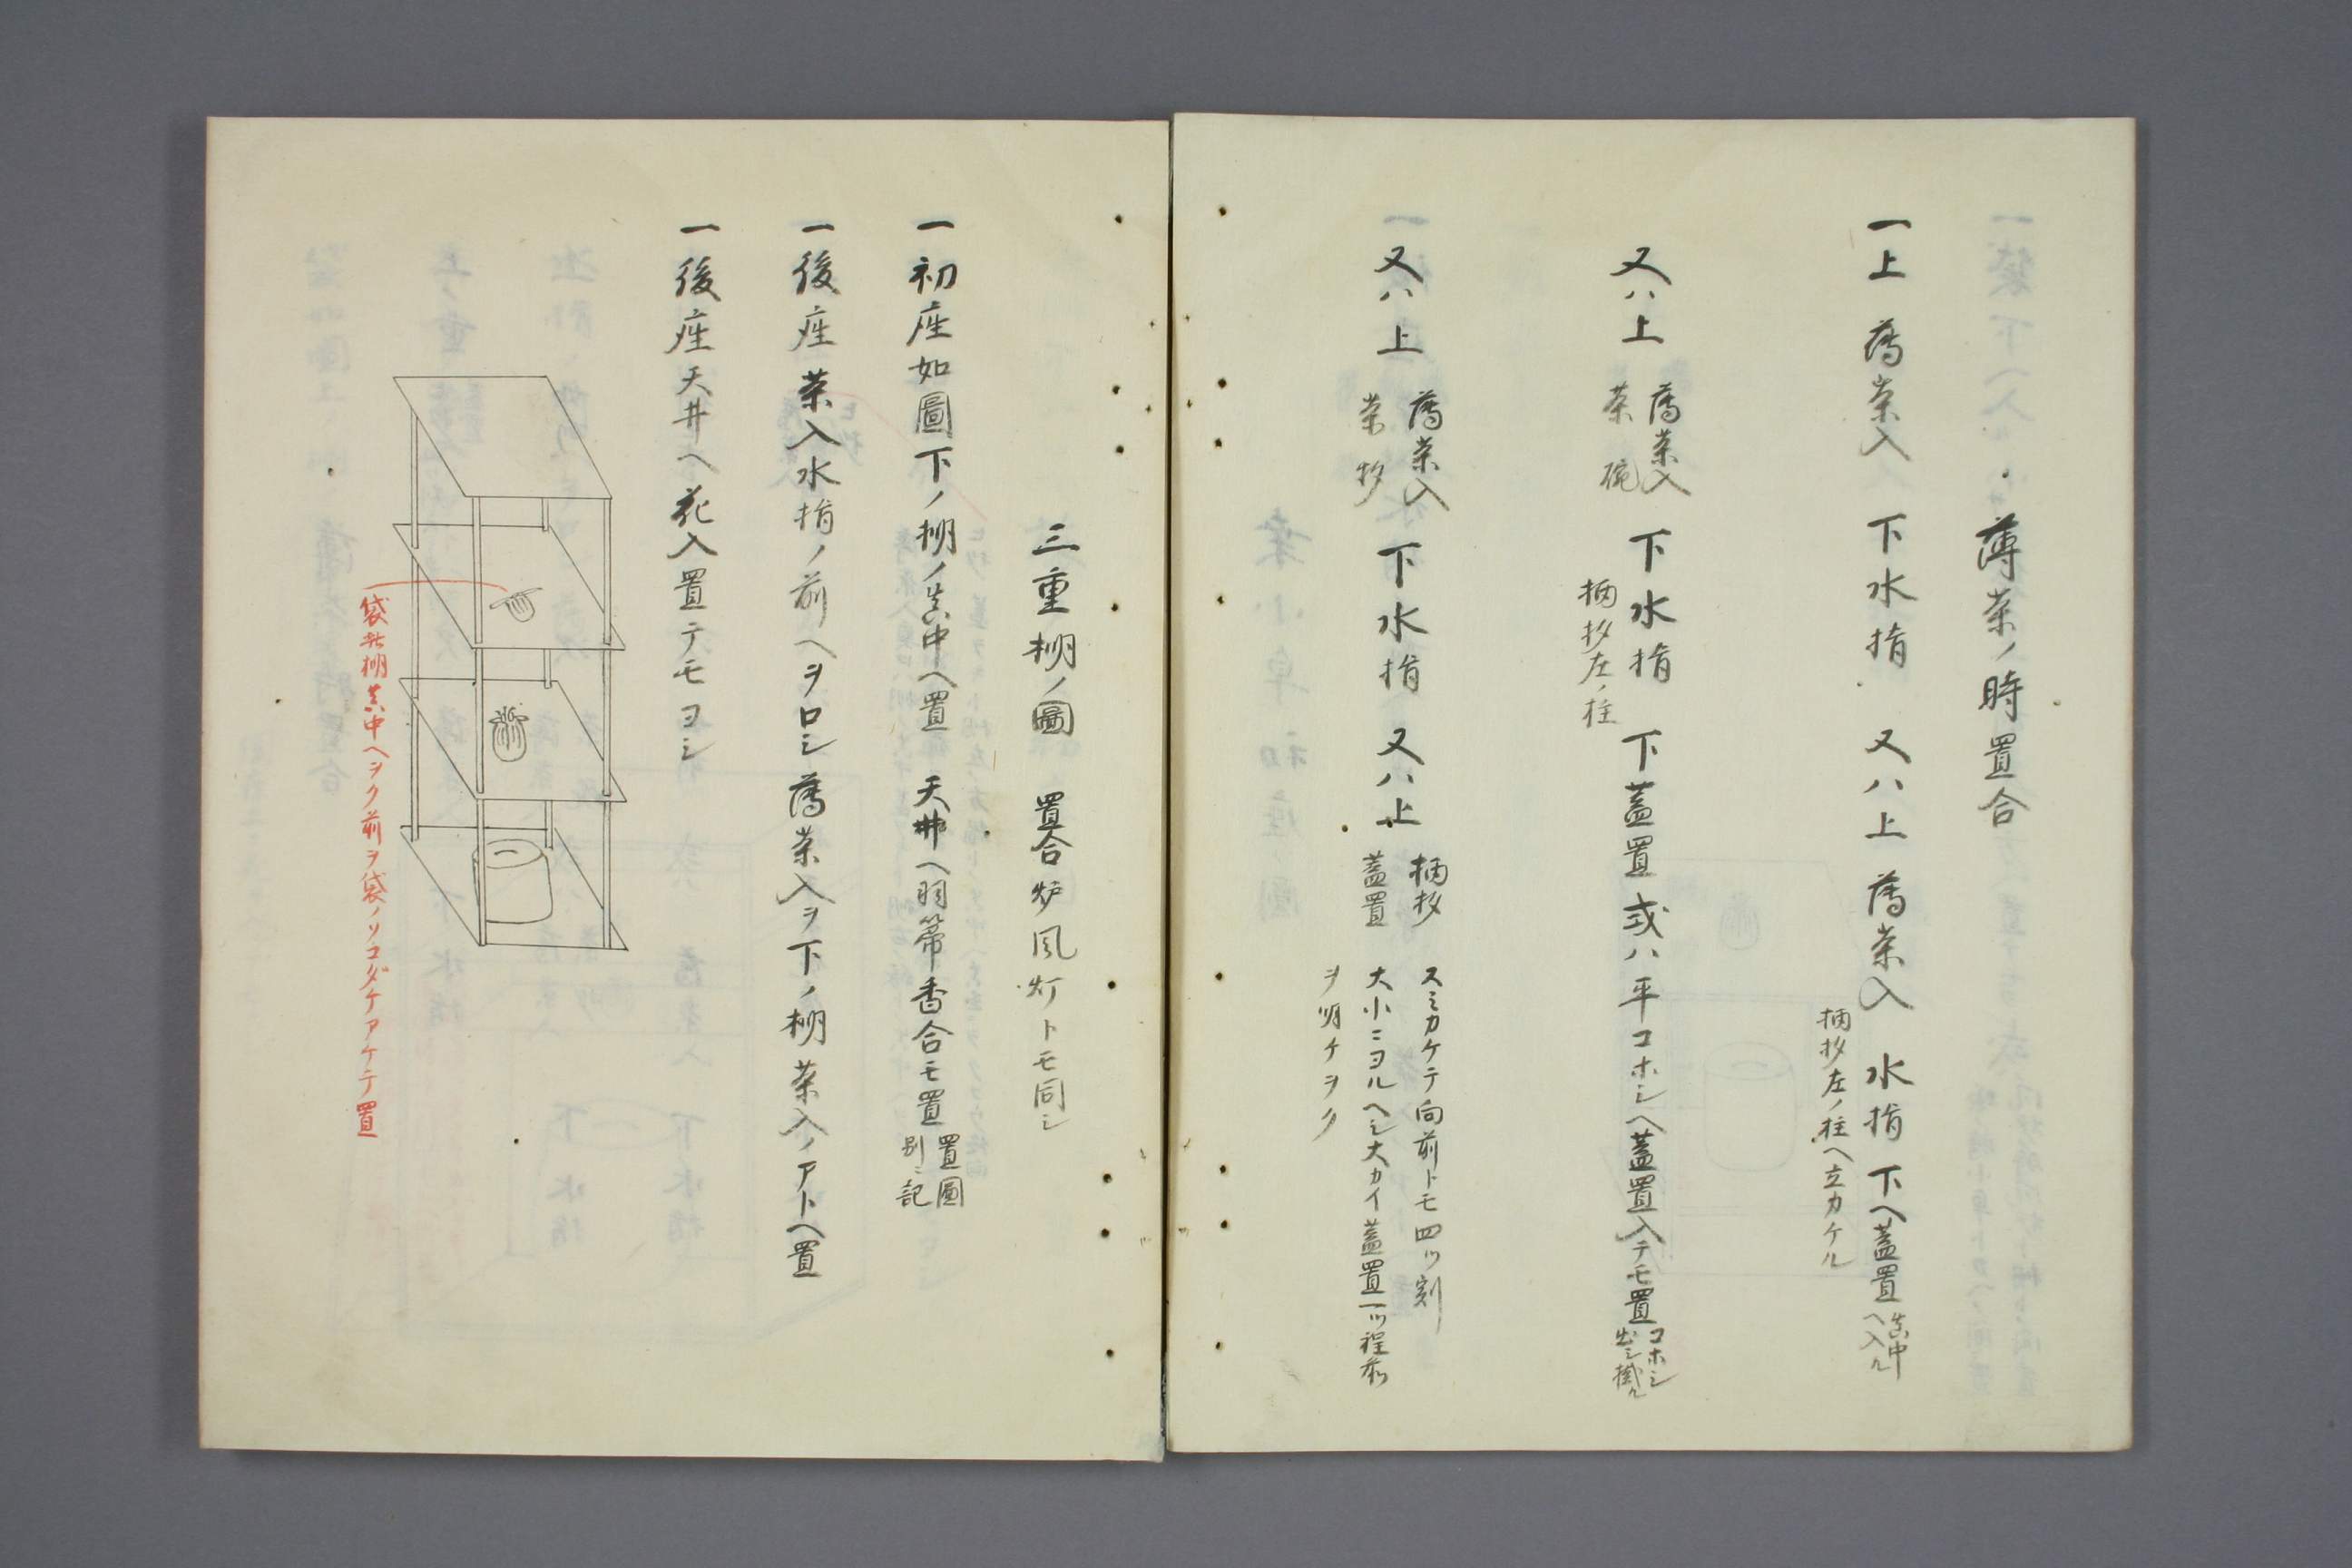 薄茶ノ時置合
一上 薄茶入 下水指 又ハ上 薄茶入 水指 下ヘ蓋置 真中ヘ入ル
柄杓左ノ柱ヘ立カケル
又ハ上 薄茶入 茶碗 下水指 下蓋置 或ハ平コホシヘ蓋置入テモ置 コホシ出シ掛ル
柄杓左ノ柱
又ハ上 薄茶入 茶杓 下水指 又ハ上 柄杓 蓋置
スミカケテ向前トモ四ツ割
大小ニヨルヘシ大カイ蓋置一ツ程前
ヲ明ケヲク
三重棚ノ圖 置合炉風灯トモ同シ
一初座如圖下ノ棚ノ真中ヘ置 天井ヘ羽箒香合モ置 置圖別ニ記
一後座茶入水指ノ前ヘヲロシ薄茶入ヲ下ノ棚茶入ノアトヘ置
一後座天井ヘ花入置テモヨシ
袋 棚真中ヘヲク前ヲ袋ノソコダケアケテ置